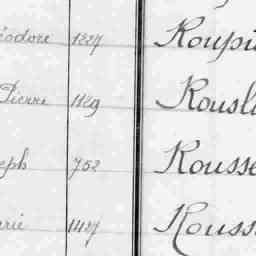 éodore 1227 Roupi
Pierre 1129 Rousl
seph 752 Rousse
arie 1427 Rouss